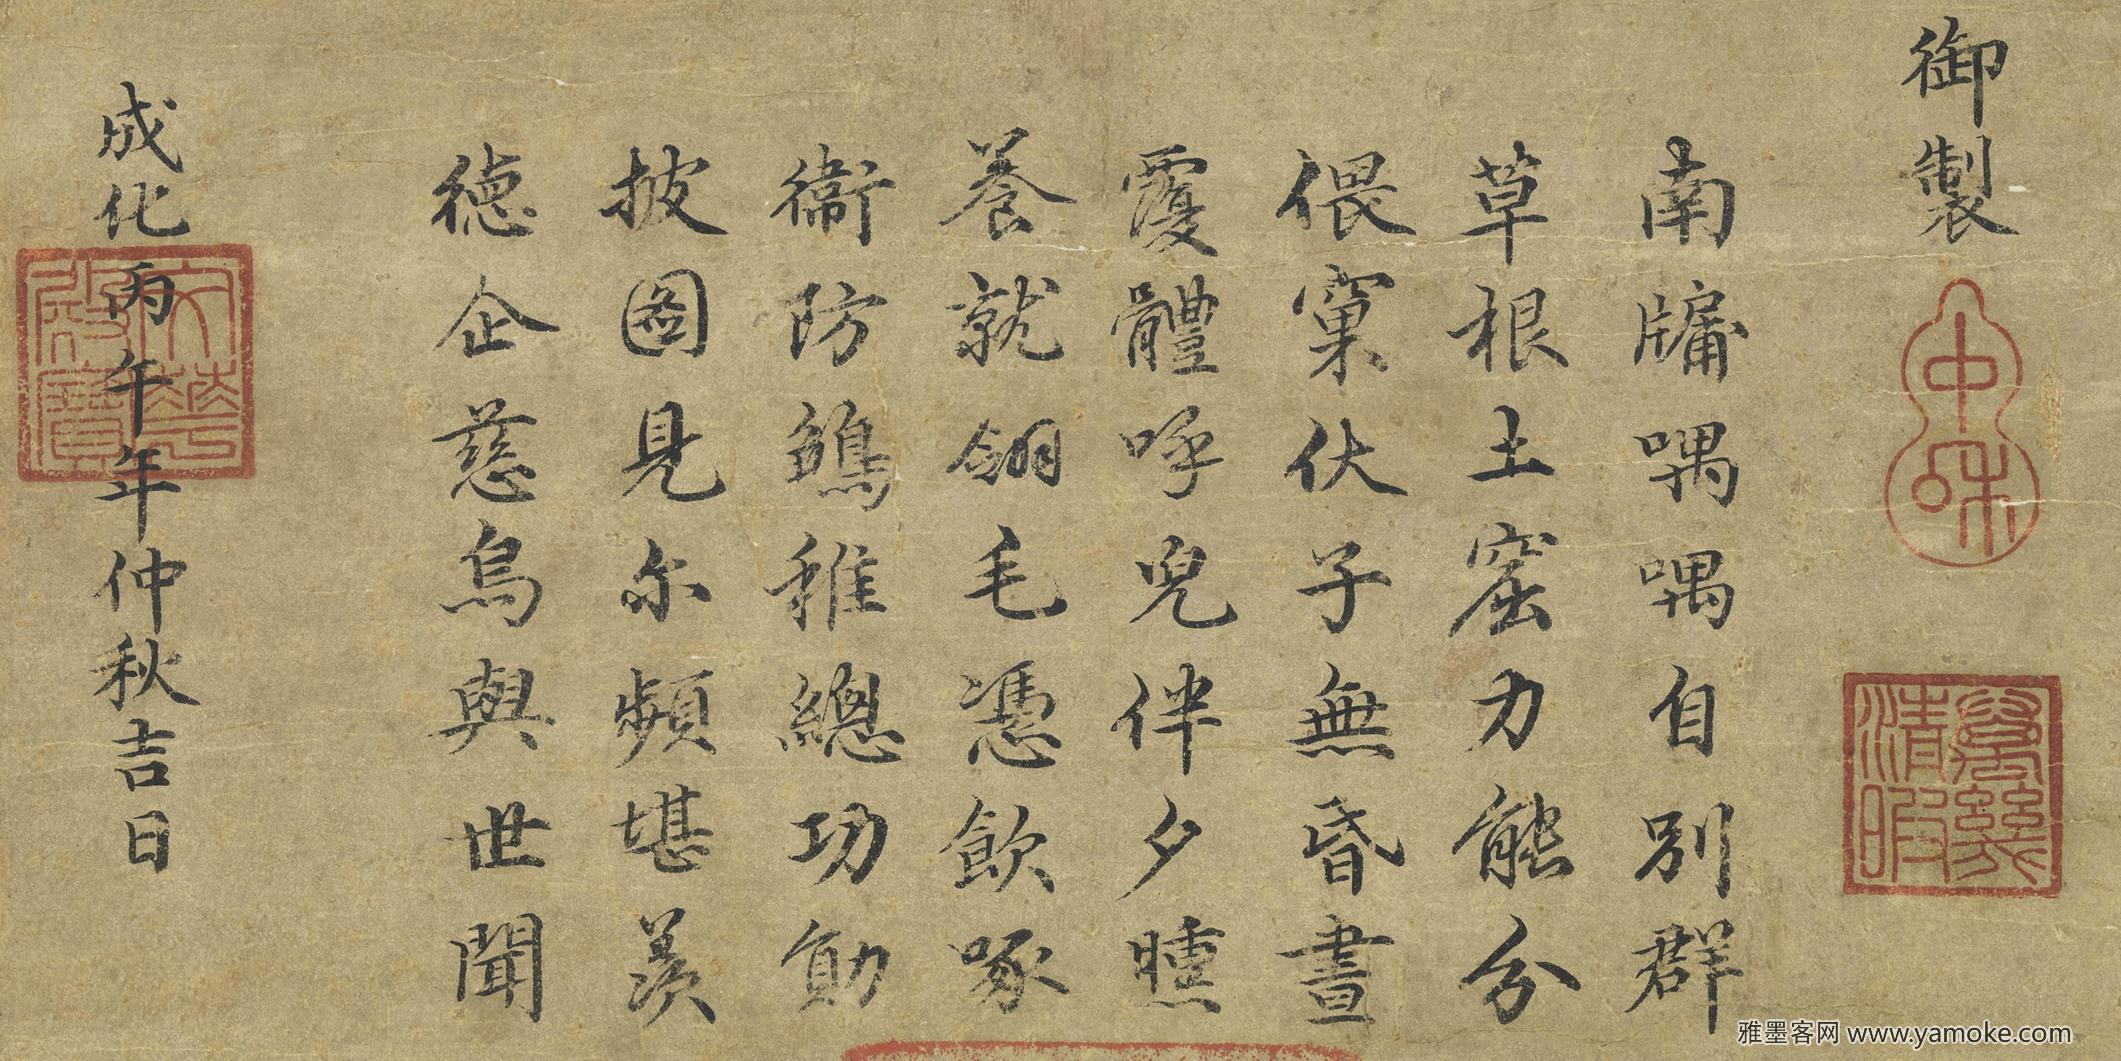 御製
中和
萬幾清暇
南牖喁喁自別群
草根土窟力能分
偎窠伏子無昏晝
覆體呼兒伴夕曛
養就翎毛憑飲啄
衞防鶵稚總功勛
披圖見尔頻堪羡
德企慈烏與世聞
成化丙午年仲秋吉日
雅墨客网 www.yamoke.com